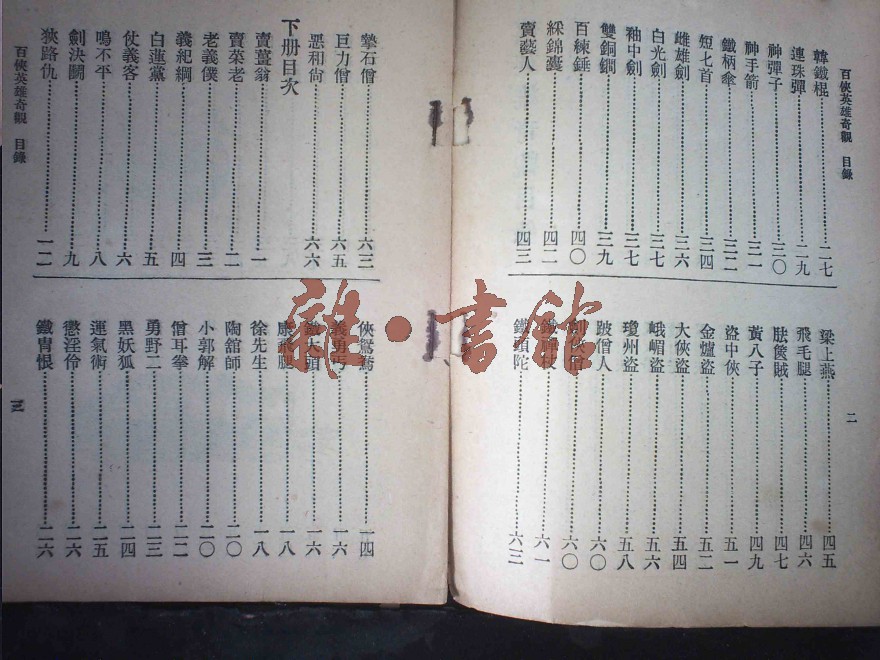 百俠英雄奇觀 目錄
韓鐵棍 二七
連珠彈 二九
神彈子 三〇
神手箭 三一
鐵柄傘 三二
短匕首 三四
雌雄劍 三六
白光劍 三七
袖中劍 三七
雙銅鐧 三九
百練錘 四〇
綵錦囊 四二
賣藝人 四三
梁上燕 四五
飛毛腿 四六
胠篋賊 四七
黃八子 四九
盜中俠 五一
金爐盜 五二
大俠盜 五四
峨嵋盜 五六
瓊州盜 五八
跛僧人 六〇
劍俠僧 六〇
六一
鐵頭陀 六三
二
百俠英雄奇觀 目錄
擊石僧 六三
巨力僧 六五
惡和尙 六六
下册目次
賣薑翁 一
賣菜老 二
老義僕 三
義紀綱 四
白蓮黨 五
仗義客 六
鳴不平 八
劍決鬭 九
狹路仇 一二
俠驚筹 一四
義勇丐 一六
一六
康飛腿 一八
徐先生 一八
陶舘師 二〇
小郭解 二〇
僧耳拳 二二
勇野二 二三
黑妖狐 二四
運氣術 二五
懲淫伶 二六
鐵冑恨 二六
三
雜·書館